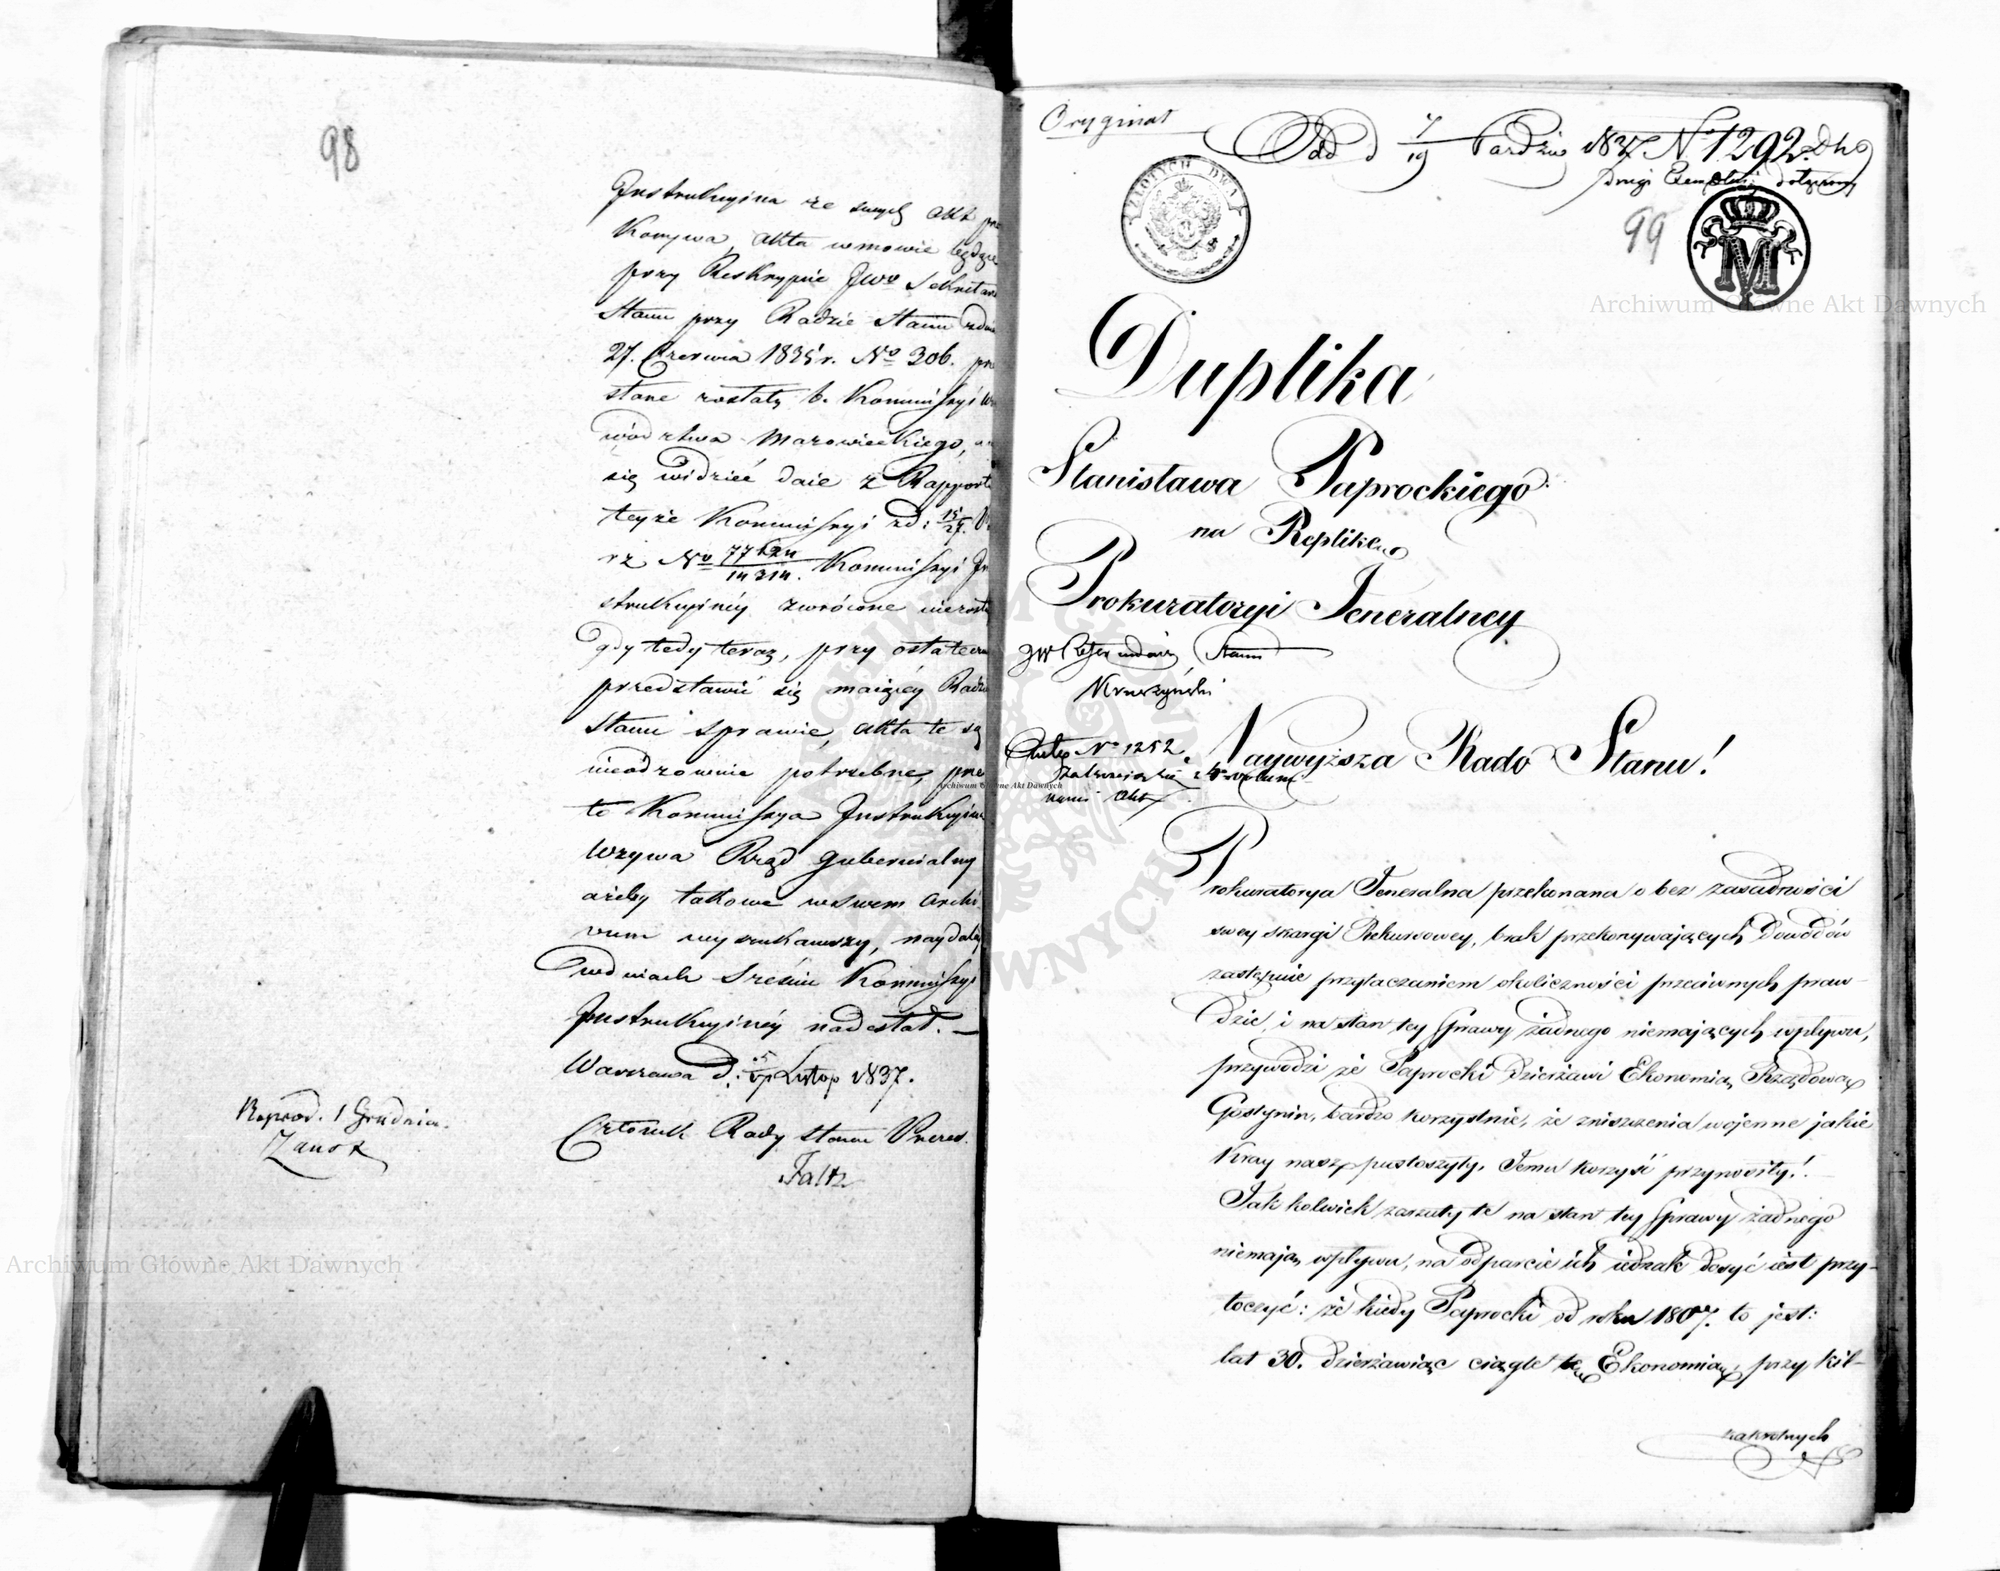 98
Instrukcyina ze swych Akt prze
Konywa, Akta wmowie będące
przy Reskrypcie JWo Sekretarza
Stanu przy Radzie Stanu zdnia
27. Czerwca 1835 r. No 306. prze
słane zostały b. Kommissyi Wo
wództwa Mazowieckiego, a
się widzieć daie z Rapportu
teyże Kommissyi zd: 15/27.
rz No Kommissyi In
strukcyinéy zwrócone niezosta
gdy tedy teraz, przy ostateczn
przedstawić się maiącey Radzie
Stanu sprawie, Akta te są
nieodzownie potrzebne, prze
to Kommissya Instrukcyina
Wzywa Rząd Gubernialny
ażeby takowe wswem Archi
wum wyszukawszy, naydaléy
wdniach Sześciu Kommissyi
Instrukcyinéy nadesłał. —
Warszawa d: Listop 1837.
Członek Rady Stanu Prezes.
Faltz
Exped. 1 Grudnia.
Oryginał
Odd d 7/19 Paździer 1837 N 1292.
Drugi Exemplarz dołączony
ZŁOTYCH DWA
99
M
Duplika
Stanisława Paprockiego
na Replikę
Prokuratoryi Jeneralney
JW Referendarz Stanu
Kruszyński
No 1252
Akt
Naywyższa Rado Stanu!
Prokuratorya Jeneralna przekonana o bez zasadności
swey skargi Rekursowey, brak przekonywaiących Dowodów
zastępuie przytaczaniem okoliczności przeciwnych praw-
dzie, i na stan tey Sprawy żadnego niemaiących wpływu,
przywodzi że Paprocki dzierżawi Ekonomią Rządową
Gostynin, bardzo korzystnie, że zniszczenia wojenne jakie
Kray nasz pustoszyły, Jemu korzyść przynosiły!
Jakkolwiek zarzuty te na stan tey Sprawy żadnego
niemaią wpływu, na odparcie ich iednak dosyć iest przy-
toczyć: że kiedy Paprocki od roku 1807. to jest:
lat 30. dzierżawiąc ciągle tę Ekonomią, przy kil-
kakrotnych
Archiwum Główne Akt Dawnych
Archiwum Główne Akt Dawnych
Archiwum Główne Akt Dawnych